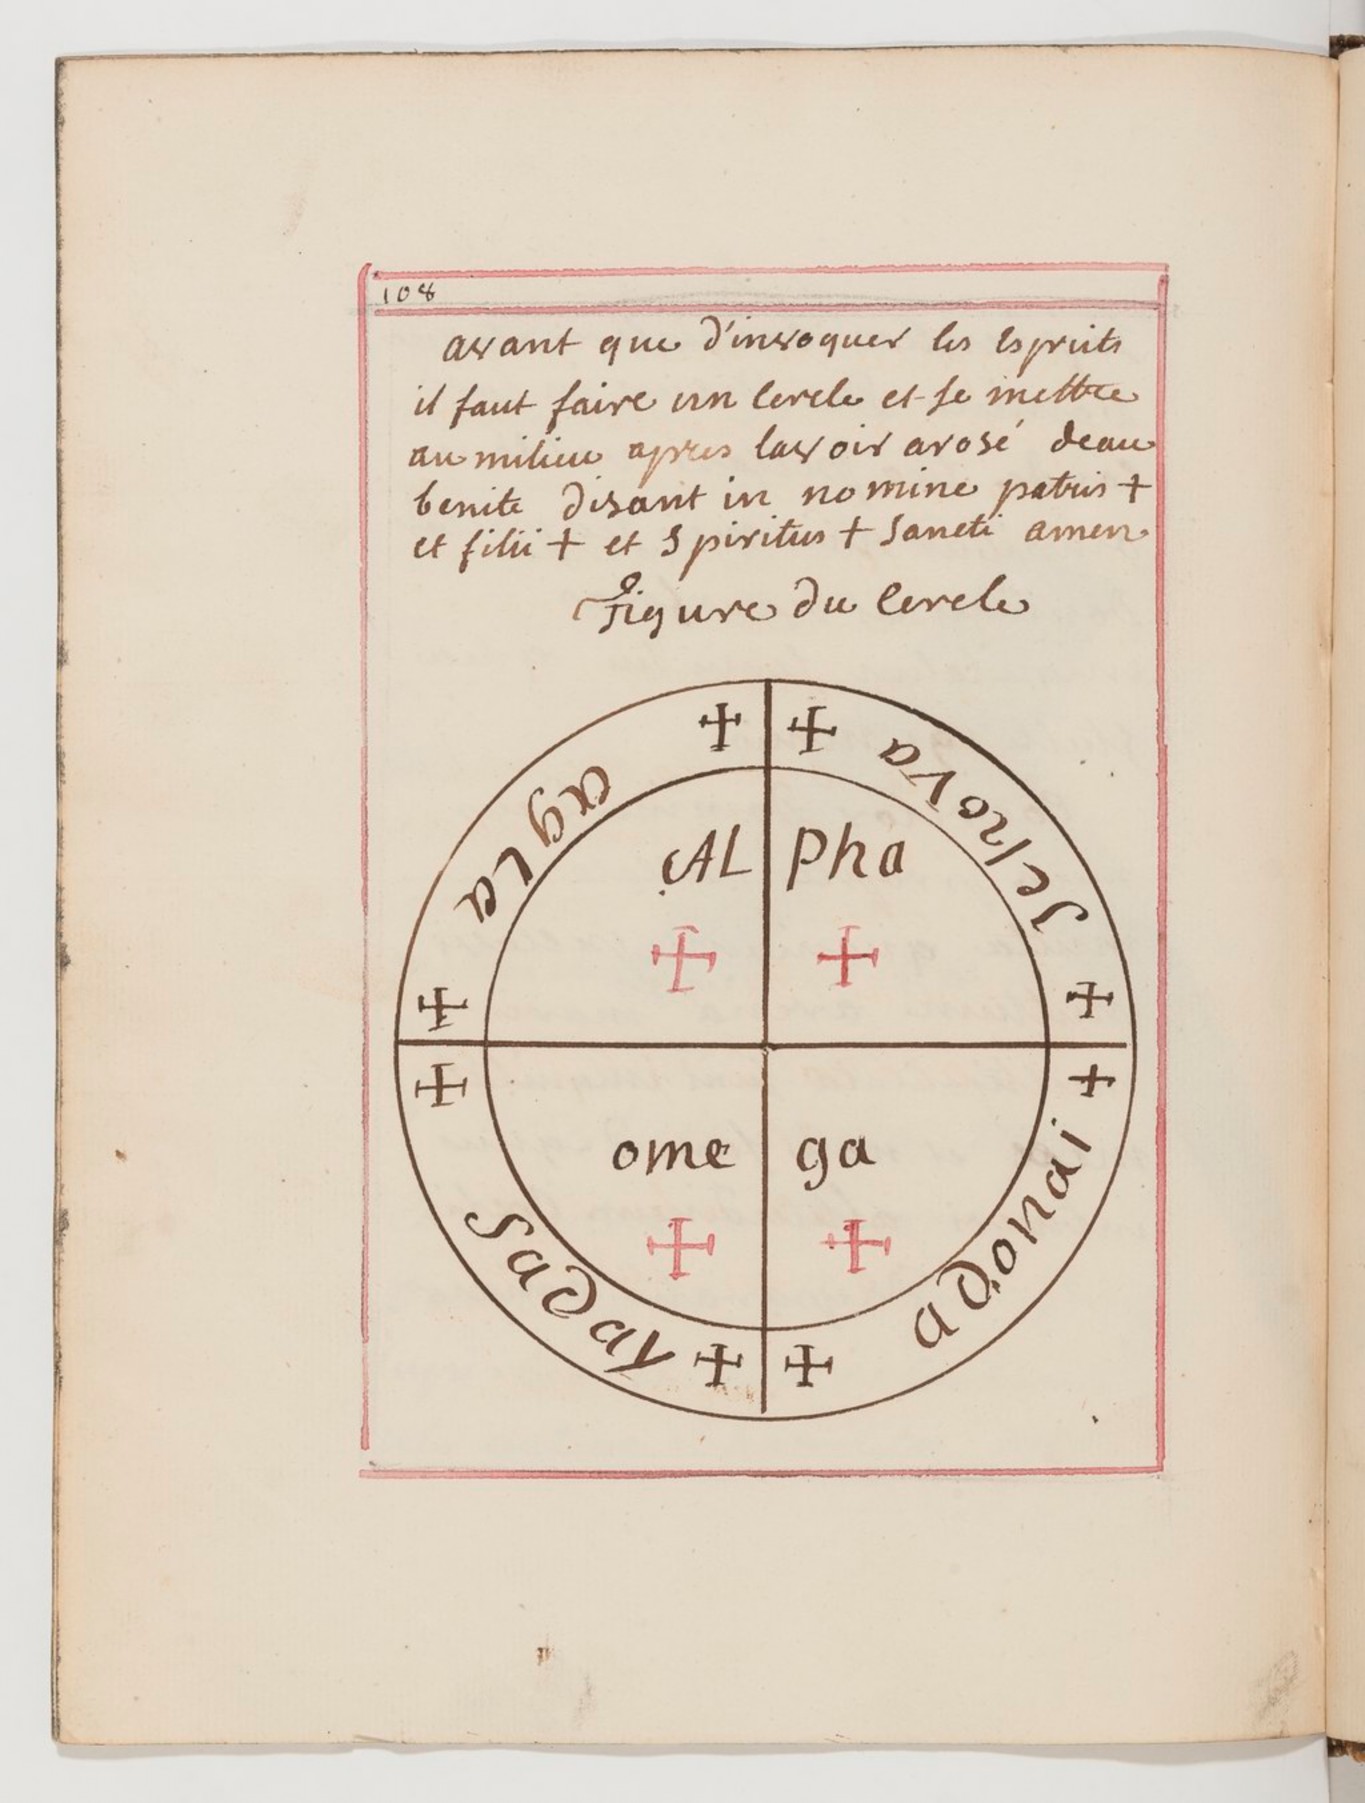 108
avant que d'invoquer les Esprits
il faut faire un Cercle et se mettre
au milieu apres lavoir arosé deau
benite disant in nomine patris +
et filii + et Spiritus + Sancti amen
Figure du Cercle
✠ ✠
agla Jehova
AL Pha
✠ ✠
✠ ✠
✠ +
ome ga
✠ ✠
Saday adonai
✠ ✠